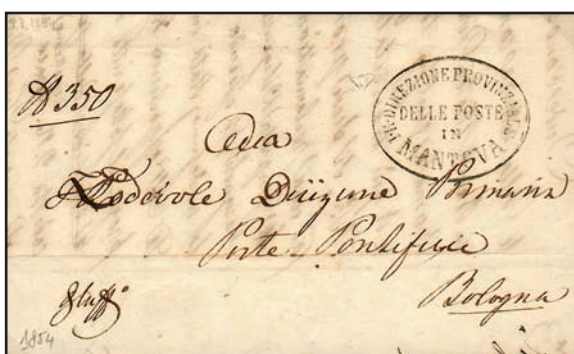 N 350
I. R. DIREZIONE PROVINZIALE
DELLE POSTE
IN
MANTOVA
Lodevole Dirizione Primaria
Poste Pontificie
Bologna
1854